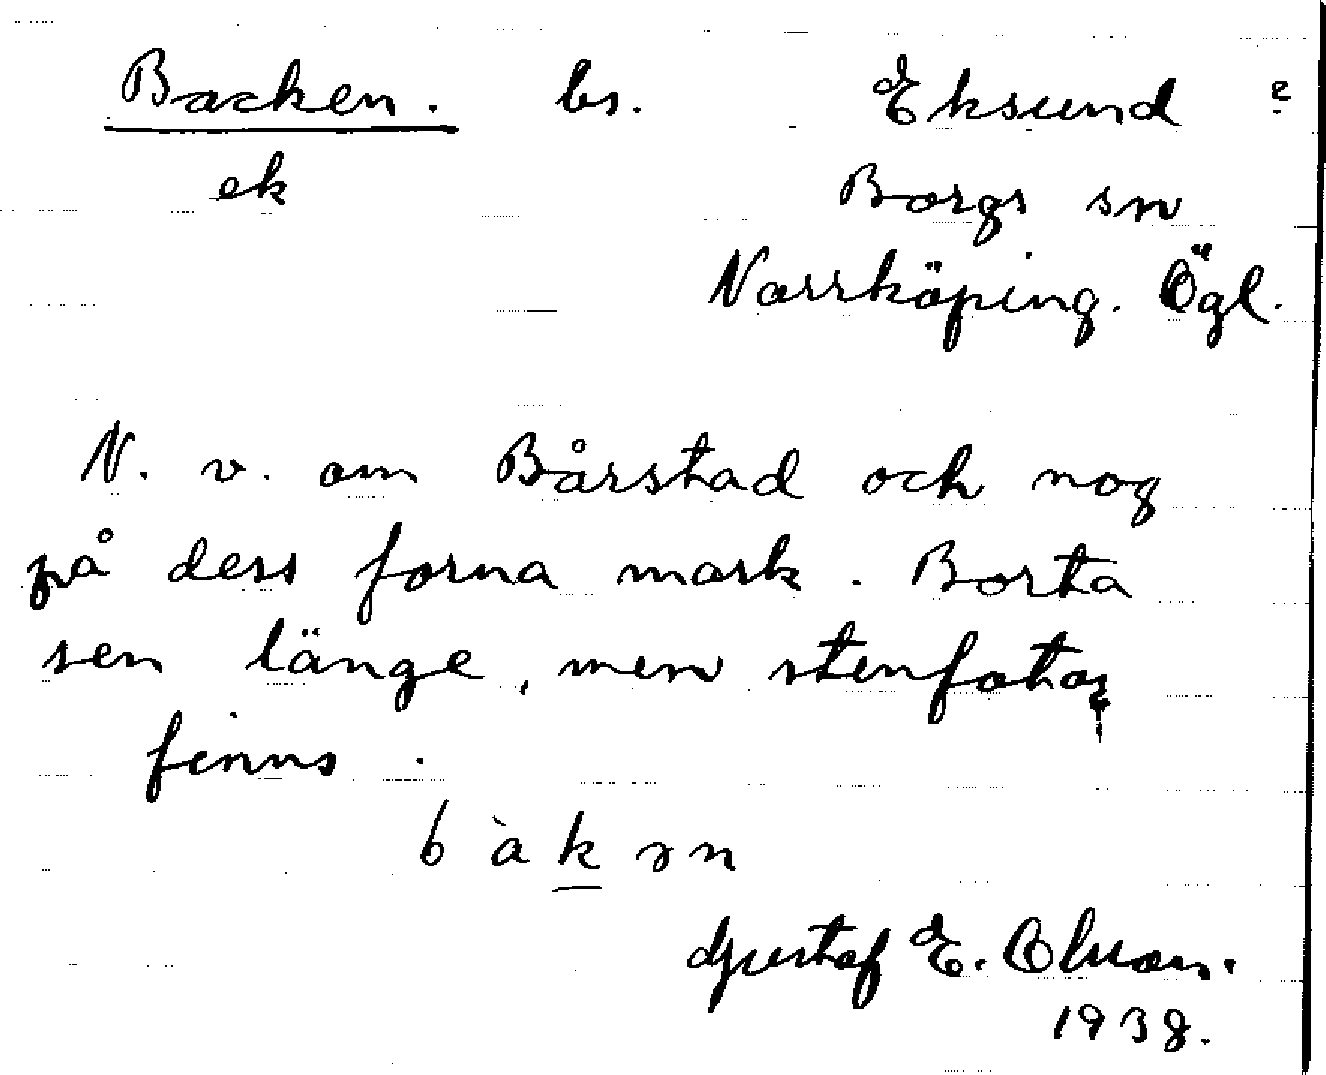 Backen. bs. Eksund e
ek Borgs sn
Norrköping. Ögl.
N. v. om Bårstad och nog
på dess forna mark. Borta
sen länge, men stenfotar
finns.
b à k ɘn
Gustaf E. Olsson.
1938.